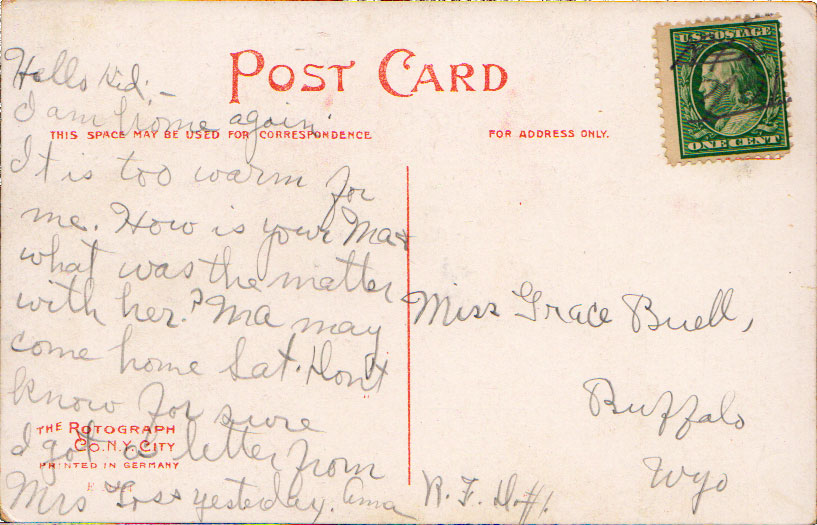 POST CARD
U.S. POSTAGE
ONE CENT
Hello Kid;—
I am home again.
THIS SPACE MAY BE USED FOR CORRESPONDENCE
FOR ADDRESS ONLY.
It is too warm for
me. How is your Ma &
what was the matter
with her? Ma may
come home Sat. Don't
know for sure
I got a letter from
Mrs yesteday. Ama
THE ROTOGRAPH
CO. N.Y. CITY
PRINTED IN GERMANY
Miss Grace Buell,
Buffalo
Wyo
R. F. D. #1.